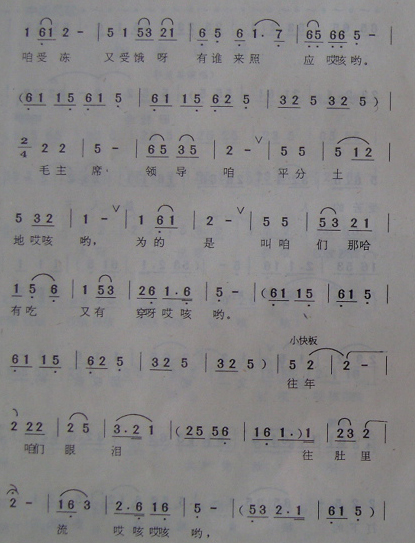 1 61 2 - | 5 1 53 21 | 6 5 6 1. 7 | 65 66 5 - |
咱受冻 又受饿呀 有谁来照 应哎咳哟。
(61 15 61 5 | 61 15 62 5 | 32 5 32 5 )
2/4 2 2 | 5 - | 65 35 | 2 - ∨ | 5 5 | 5 12 |
毛主席 领导咱 平分土
5 32 | 1 - ∨ | 1 61 | 2 - ∨ | 5 5 | 53 21 |
地哎咳哟, 为的是 叫咱们那哈
15 6 | 1 53 | 26 1.6 | 5 - | (61 15 | 61 5 |
有吃 又有 穿呀哎咳哟。
61 15 | 62 5 | 32 5 | 32 5 ) | 5 2 | 2 - |
小快板
往年
2 22 | 2 5 | 3.2 1 | (25 56 | 16 1.) 1 | 23 2 |
咱们眼泪 往肚里
2 - | 16 3 | 2.6 16 | 5 - | (53 2.1 | 61 5 ) |
流 哎咳哎咳哟,